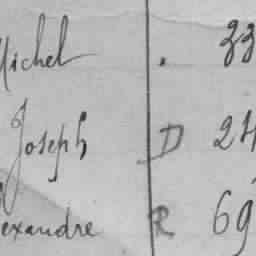 Michel . 33
Joseph D 24
exandre R 69